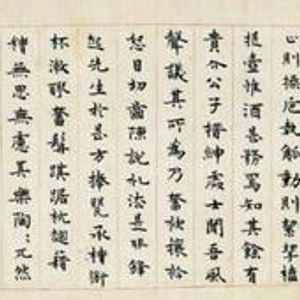 止則操卮執觚動則挈榼
提壺惟酒是務焉知其餘有
貴介公子搢紳處士聞吾風
聲議其所為乃奮袂攘衿
怒目切齒陳說礼法是非鋒
起先生於是方捧甖承槽銜
杯漱醪奮髯踑踞枕麴藉
糟無思無慮其樂陶〻兀然